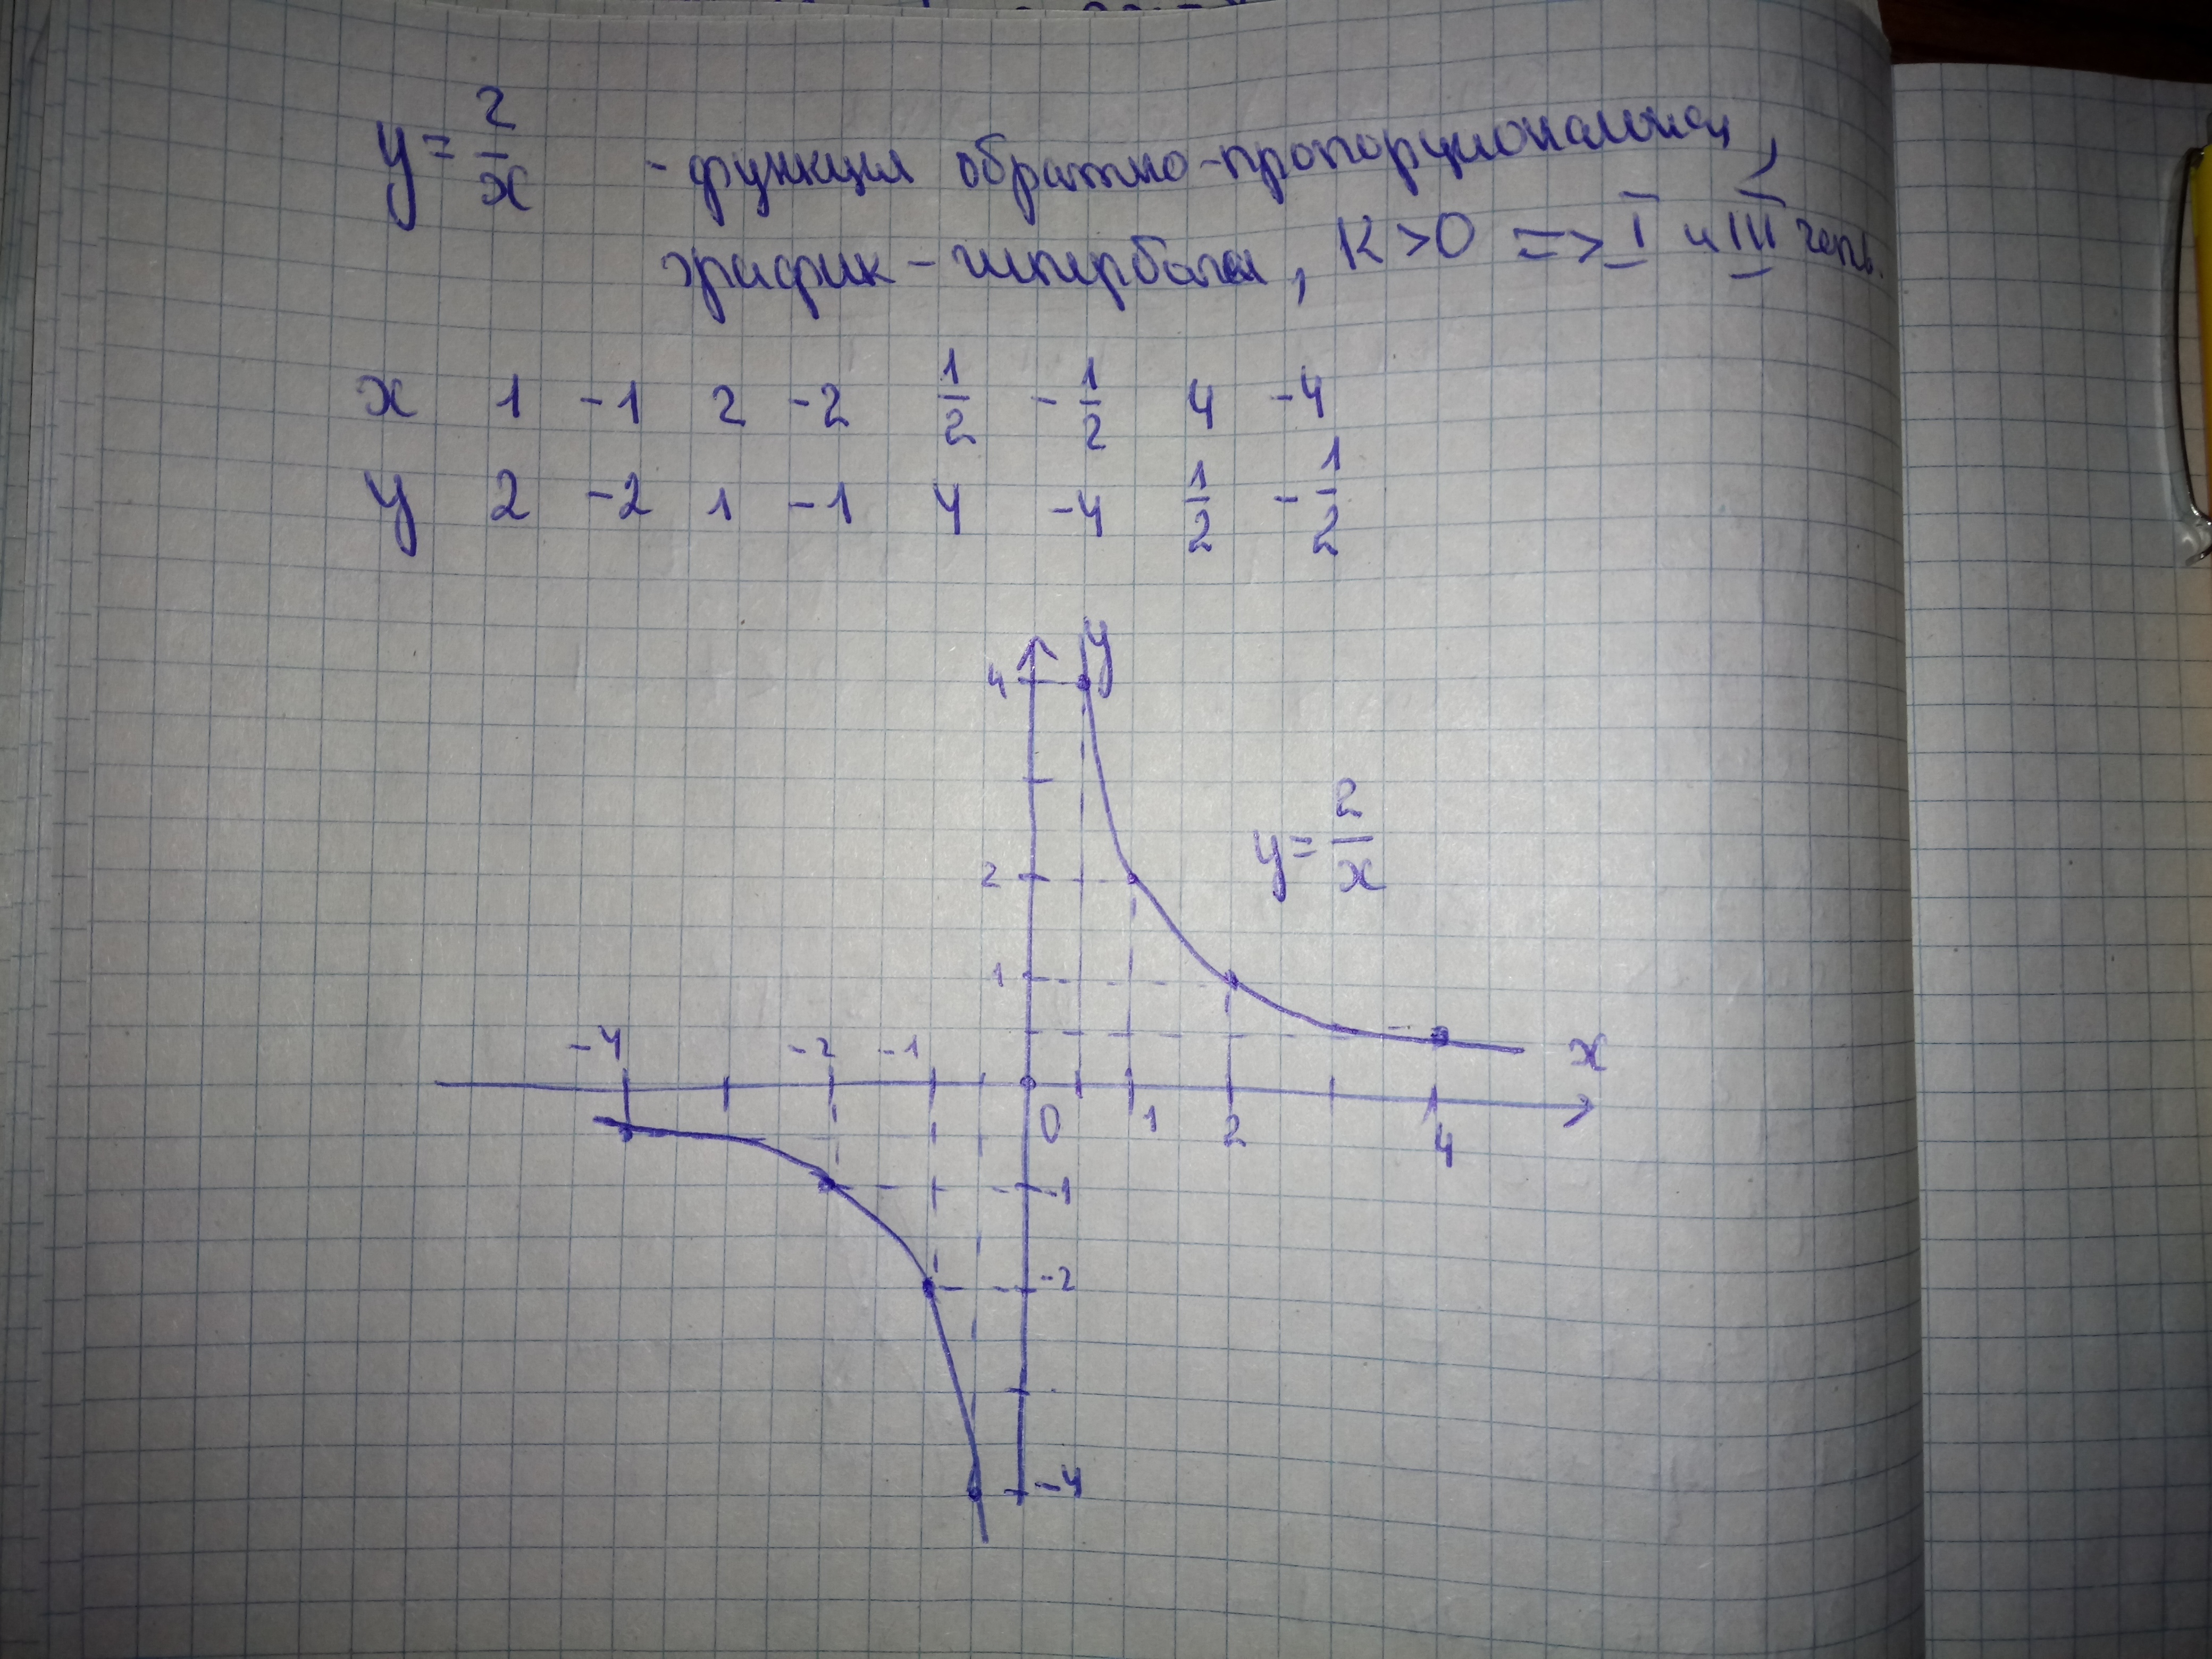 y = 2/x - функция обратно-пропорциональная,
график - гипербола, K > 0 => I и III четв.
x 1 -1 2 -2 1/2 -1/2 4 -4
y 2 -2 1 -1 4 -4 1/2 -1/2
y
4
y = 2/x
2
1
-4 -2 -1 x
0 1 2 4
-1
-2
-4